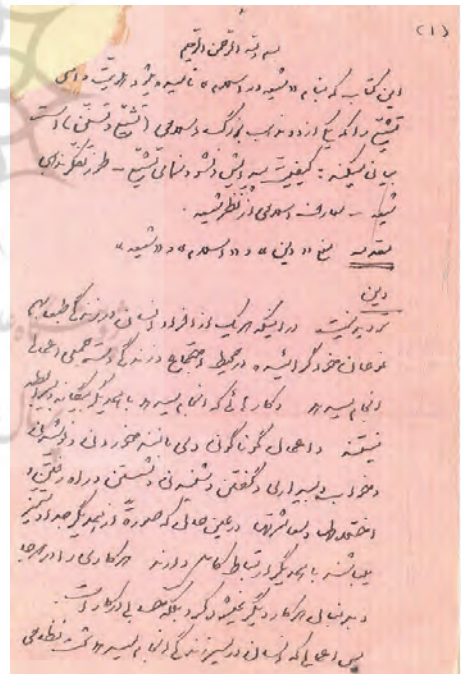 (۱)
بسم الله الرحمن الرحیم
این کتاب که بنام «شیعه در اسلام» نامیده میشود هویت واقعی
تشیع را که یکی از دو مذهب بزرگ اسلامی (تشیع و تسنن) است
بیان میکند: کیفیت پیدایش و نشو و نمای تشیع – طرز تفکر مذهبی
شیعه – معارف اسلامی از نظر شیعه.
مقدمه معنی «دین» و «اسلام» و «شیعه»
دین
تردید نیست در اینکه هر یک از افراد انسان در زندگی طبعا بهم
نوعان خود گرائیده در محیط اجتماع و زندگی دسته جمعی اعمالی
انجام میدهد و کارهائی که انجام میدهد با همدیگر بیگانه و بیرابطه
نیستند و اعمال گوناگون وی مانند خوردن و نوشیدن
و خواب و بیداری و گفتن و شنیدن و نشستن و راه رفتن و
اختلاطها و معاشرتها در عین حال که صورة از همدیگر جدا و متمیز
میباشند با همدیگر ارتباط کامل دارند هر کاری را در هر جا
و بدنبال هر کار دیگر نمیشود کرد بلکه حسابی در کار است.
پس اعمالی که انسان در مسیر زندگی انجام میدهد تحت نظامی